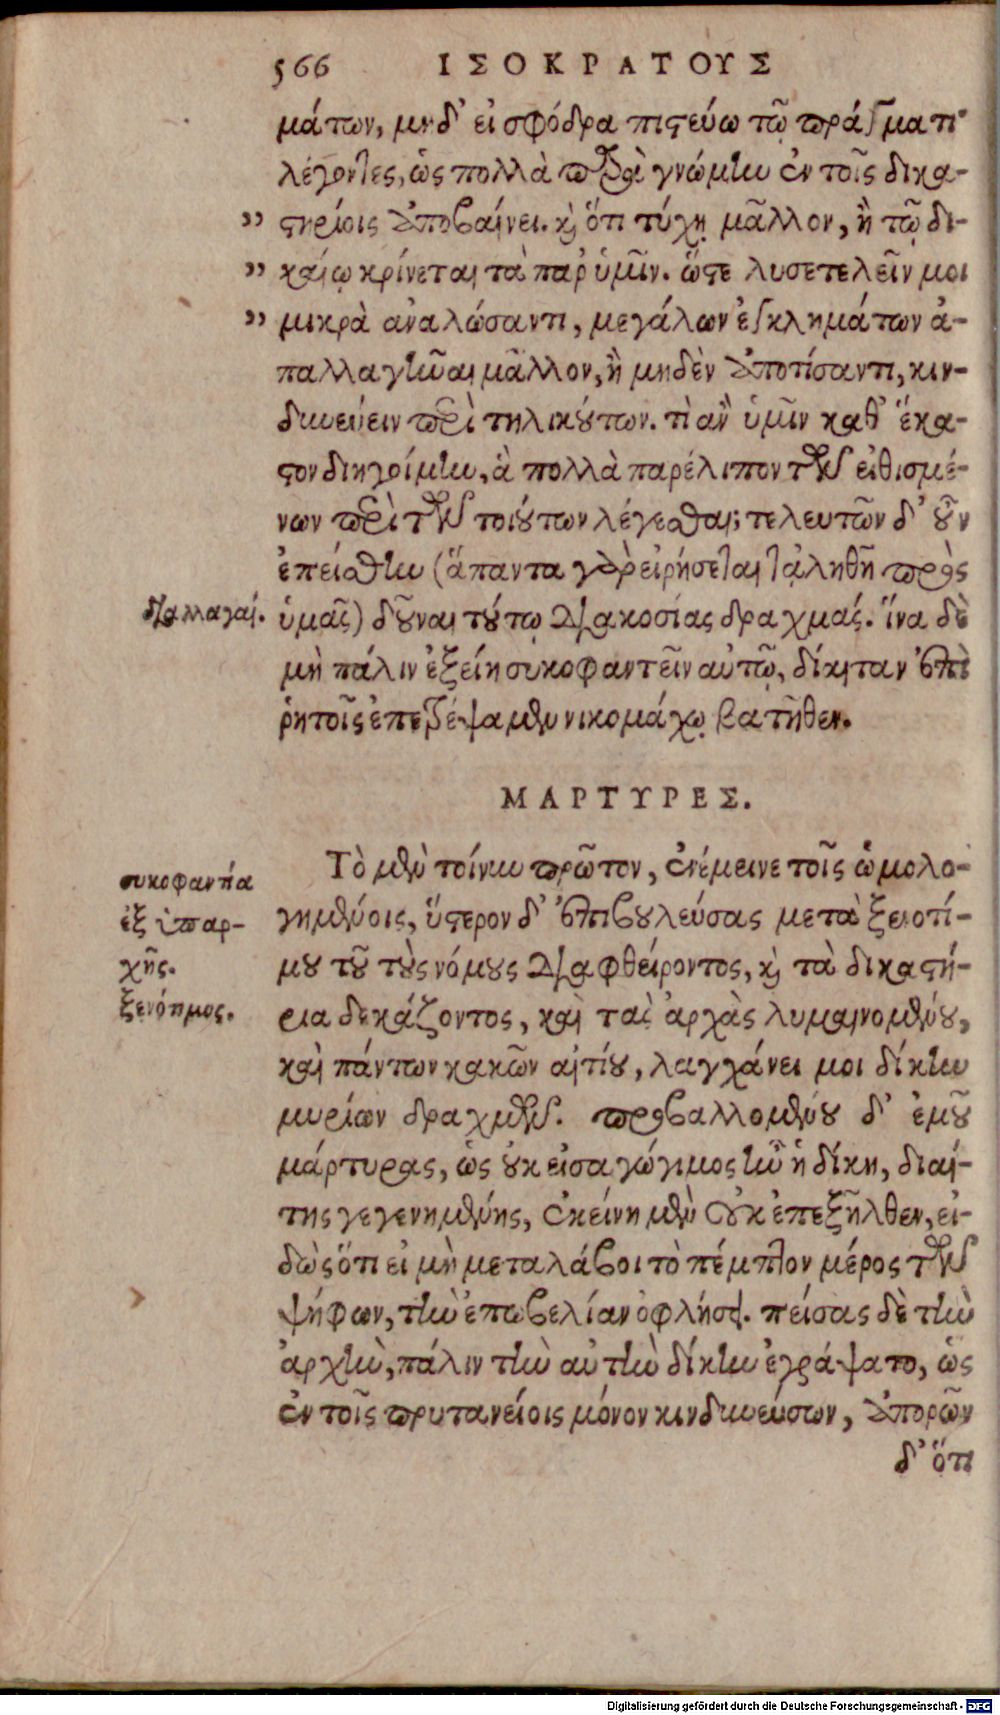 566 ΙΣΟΚΡΑΤΟΥΣ
μάτων, μηδ' εἰ σφόδρα πιστεύω τῷ πράγματι
λέγοντες, ὡς πολλὰ παρὰ γνώμην ἐν τοῖς δικα-
" στηρίοις ἀποβαίνει. καὶ ὅτι τύχῃ μᾶλλον, ἢ τῷ δι-
" καίῳ κρίνεται τὰ παρ' ὑμῖν. ὥστε λυσετελεῖν μοι
" μικρὰ ἀναλώσαντι, μεγάλων ἐγκλημάτων ἀ-
παλλαγῆναι μᾶλλον, ἢ μηδὲν ἀποτίσαντι, κιν-
δυνεύειν περὶ τηλικούτων. τί ἂν ὑμῖν καθ' ἕκα-
στον διηγοίμην, ἃ πολλὰ παρέλιπον τῶν εἰθισμέ-
νων περὶ τῶν τοιούτων λέγεσθαι; τελευτῶν δ' οὖν
ἐπείσθην (ἅπαντα γὰρ εἰρήσεται τἀληθῆ πρὸς
διαλλαγαί. ὑμᾶς) δοῦναι τούτῳ διακοσίας δραχμάς. ἵνα δὲ
μὴ πάλιν ἐξείη συκοφαντεῖν αὐτῷ, δίαιταν ἐπὶ
ῥητοῖς ἐπετρέψαμεν νικομάχῳ βατῆθεν.
ΜΑΡΤΥΡΕΣ.
Τὸ μὲν τοίνυν πρῶτον, ἐνέμεινε τοῖς ὡμολο-
συκοφαντία
γημένοις, ὕστερον δ' ἐπιβουλεύσας μετὰ ξενοτί-
ἐξ ὑπαρ-
μου τοῦ τοὺς νόμους διαφθείροντος, καὶ τὰ δικαστή-
χῆς.
ρια δεκάζοντος, καὶ τὰς ἀρχὰς λυμαινομένου,
ξενότιμος.
καὶ πάντων κακῶν αἰτίου, λαγχάνει μοι δίκην
μυρίων δραχμῶν. προβαλλομένου δ' ἐμοῦ
μάρτυρας, ὡς οὐκ εἰσαγώγιμος ἦν ἡ δίκη, διαί-
της γεγενημένης, ἐκείνῃ μὲν οὐκ ἐπεξῆλθεν, εἰ-
δὼς ὅτι εἰ μὴ μεταλάβοι τὸ πέμπτον μέρος τῶν
ψήφων, τὴν ἐπωβελίαν ὀφλήσει. πείσας δὲ τὴν
ἀρχὴν, πάλιν τὴν αὐτὴν δίκην ἐγράψατο, ὡς
ἐν τοῖς πρυτανείοις μόνον κινδυνεύσων, ἀπορῶν
δ' ὅτι
Digitalisierung gefördert durch die Deutsche Forschungsgemeinschaft - DFG